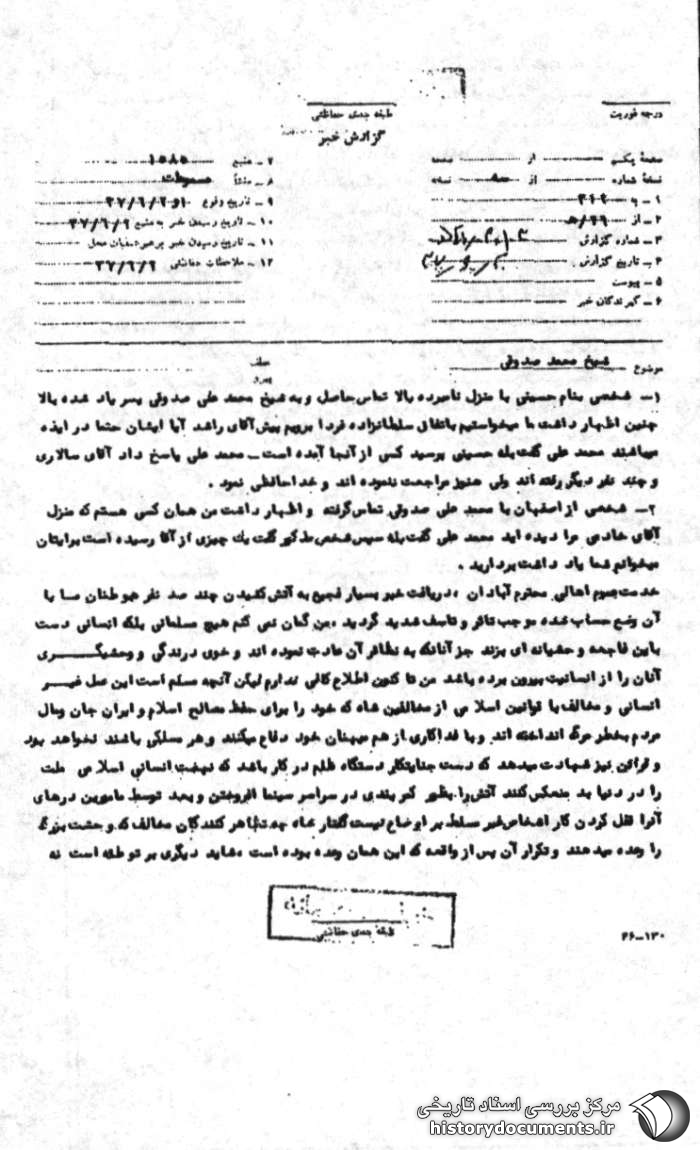 درجه فوریت
طبقه بندی حفاظتی
گزارش خبر
صفحه یکم از صفحه
نسخه شماره از نسخه
۱ـ به ۳۱۲
۲ـ از
۳ـ شماره گزارش
۴ـ تاریخ گزارش
۵ـ پیوست
۶ـ گیرندگان خبر
۷ـ منبع ۱۵۸۵
۸ـ منشأ
۹ـ تاریخ وقوع
۱۰ـ تاریخ رسیدن خبر به منبع ۳۷/۶/۲
۱۱ـ تاریخ رسیدن خبر برهبر عملیات محل
۱۲ـ ملاحظات حفاظتی ۳۷/۶/۶
موضوع شیخ محمد صدوقی
۱ـ شخصی بنام حسینی با منزل نامبرده بالا تماس حاصل و به شیخ محمد علی صدوقی پسر یاد شده بالا
چنین اظهار داشت ما میخواستیم باتفاق سلطانزاده فردا برویم پیش آقای راشد آیا ایشان حتما در ایذه
میباشند محمد علی گفت بله حسینی پرسید کسی از آنجا آمده است ـ محمد علی پاسخ داد آقای سالاری
و چند نفر دیگر رفته اند ولی هنوز مراجعت ننموده اند و خداحافظی نمود .
۲ـ شخصی از اصفهان با محمد علی صدوقی تماس گرفته و اظهار داشت من همان کسی هستم که منزل
آقای خادمی مرا دیده اید محمد علی گفت بله سپس شخص مذکور گفت یك چیزی از آقا رسیده است برایتان
میخوانم شما یاد داشت بردارید .
خدمت عموم اهالی محترم آبادان ، دریافت خبر بسیار فجیع به آتش کشیدن چند صد نفر هموطنان ما با
آن وضع حساب شده موجب تاثر و تاسف شدید گردید ،من گمان نمی کنم هیچ مسلمانی بلکه انسانی دست
باین فاجعه وحشیانه ای بزند جز آنانکه به نظائر آن عادت نموده اند و خوی درندگی و وحشیگری
آنان را از انسانیت بیرون برده باشد من تا کنون اطلاع کافی ندارم لیکن آنچه مسلم است این عمل غیر
انسانی و مخالف با قوانین اسلامی از مخالفین شاه که خود را برای حفظ مصالح اسلام و ایران جان و مال
مردم بخطر مرگ انداخته اند و با فداکاری از هم میهنان خود دفاع میکنند و هر مسلکی باشند نخواهد بود
و قرائن نیز شهادت میدهد که دست جنایتکار دستگاه ظلم در کار باشد که نهضت انسانی اسلامی ملت
را در دنیا بد منعکس کنند آتش را بطور کمربندی در سراسر سینما افروختن و بعد توسط مامورین درهای
آنرا قفل کردن کار اشخاص غیر مسلط بر اوضاع نیست گفتار شاه که تظاهر کنندگان مخالف که وحشت بزرگ
را وعده میدهند و تکرار آن پس از واقعه که این همان وعده بوده است ،شاید دیگری بر توطئه است نه
طبقه بندی حفاظتی
۲۶-۱۳۰
مرکز بررسی اسناد تاریخی
historydocuments.ir